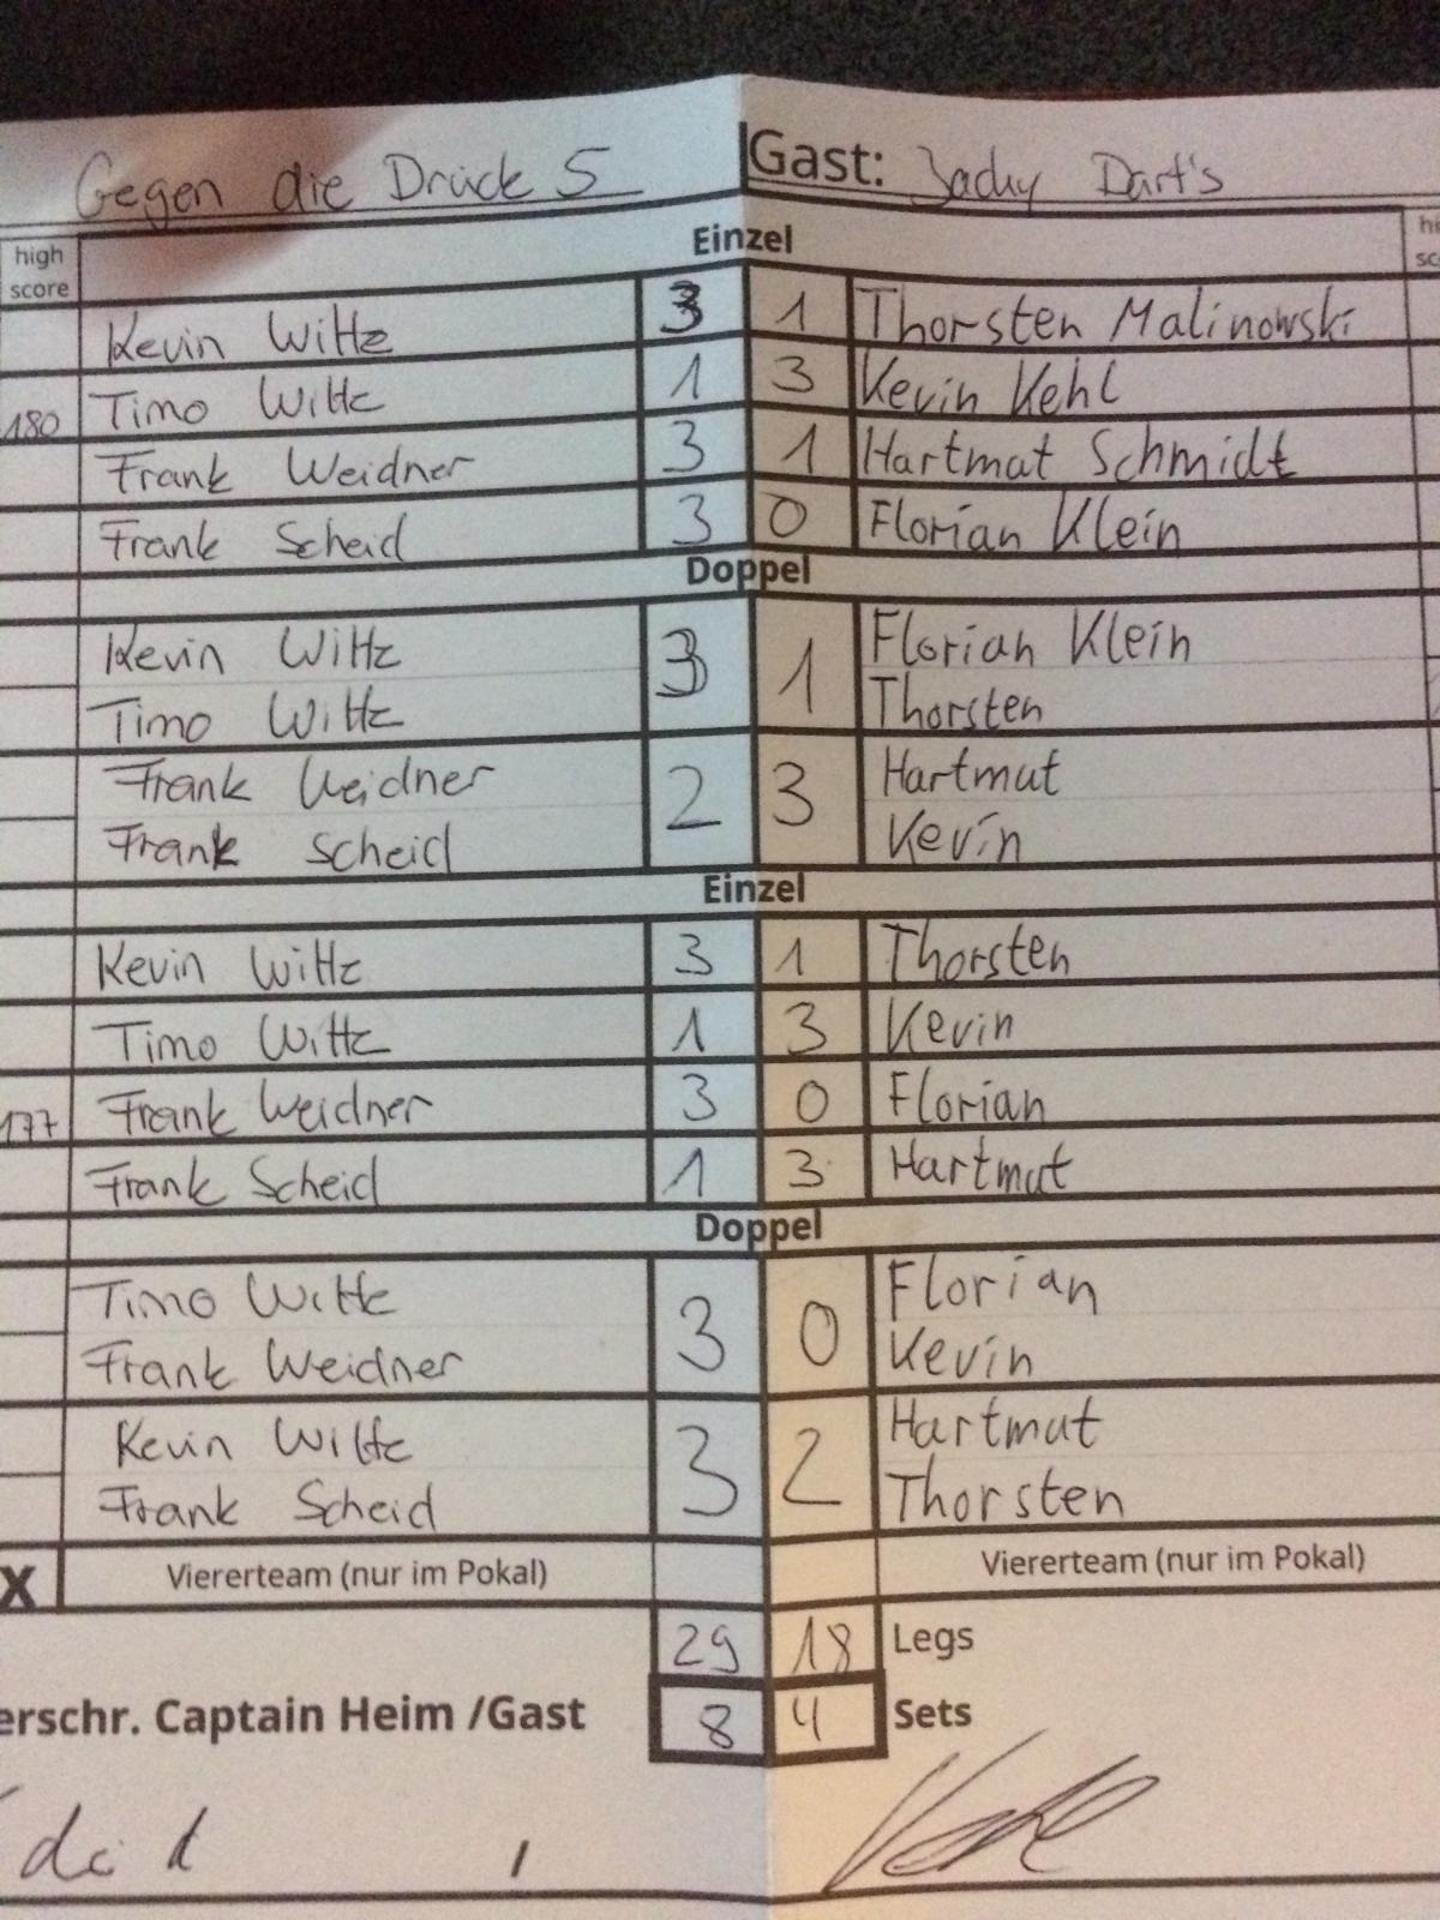 Gegen die Drück 5 Gast: Jacky Dart's
high score Einzel
Kevin Wiltz 3 1 Thorsten Malinowski
180 Timo Wiltz 1 3 Kevin Kehl
Frank Weidner 3 1 Hartmut Schmidt
Frank Scheid 3 0 Florian Klein
Doppel
Kevin Wiltz 3 1 Florian Klein
Timo Wiltz Thorsten
Frank Weidner 2 3 Hartmut
Frank Scheid Kevin
Einzel
Kevin Wiltz 3 1 Thorsten
Timo Wiltz 1 3 Kevin
177 Frank Weidner 3 0 Florian
Frank Scheid 1 3 Hartmut
Doppel
Timo Wiltz 3 0 Florian
Frank Weidner Kevin
Kevin Wiltz 3 2 Hartmut
Frank Scheid Thorsten
X Viererteam (nur im Pokal) Viererteam (nur im Pokal)
29 18 Legs
erschr. Captain Heim /Gast 8 4 Sets